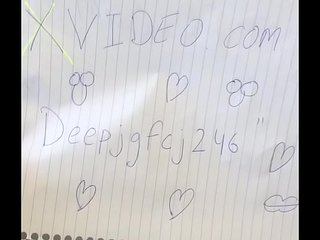 X VIDEO.com
Deepjgfcj246"